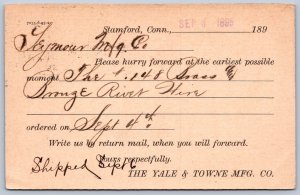 Stamford, Conn., SEP 4 1895 189
Seymour Mfg. Co
Please hurry forward at the earliest possible
moment The # 148 Brass &
Bronze Rivet Wire
ordered on Sept 4th.
Write us by return mail, when you will forward.
Yours respectfully,
Shipped Sept 6
THE YALE & TOWNE MFG. CO.